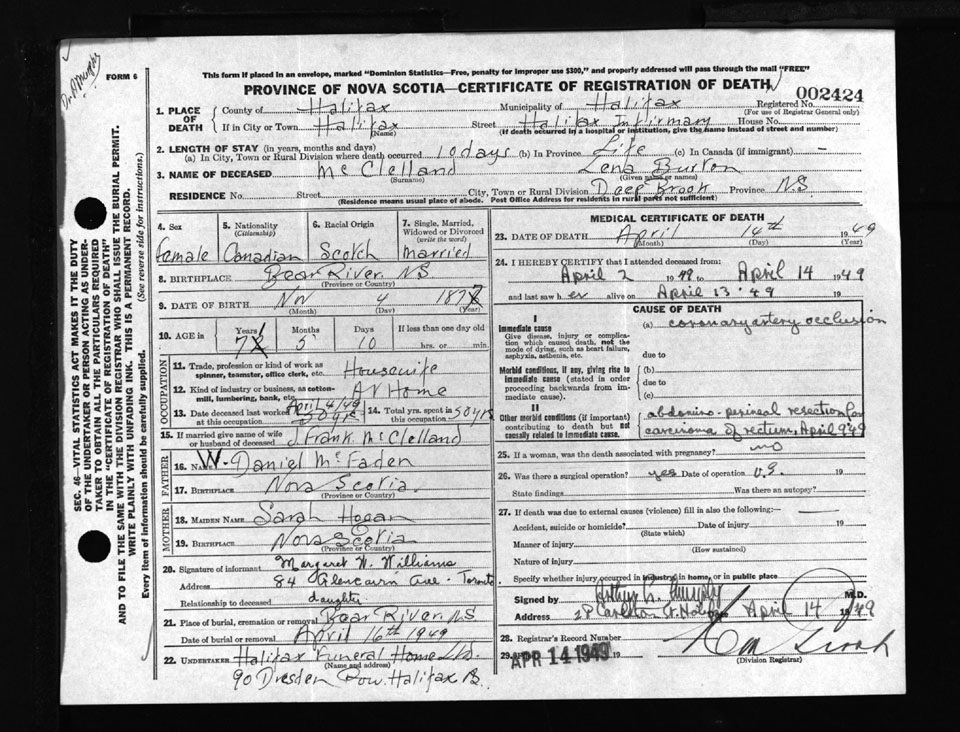 Dr. A. Murphy
FORM 6
This form if placed in an envelope, marked "Dominion Statistics—Free, penalty for improper use $300," and properly addressed will pass through the mail "FREE"
PROVINCE OF NOVA SCOTIA—CERTIFICATE OF REGISTRATION OF DEATH
002424
1. PLACE OF DEATH
County of Halifax Municipality of Halifax Registered No.
(For use of Registrar General only)
If in City or Town Halifax Street Halifax Infirmary House No.
(Name) (If death occurred in a hospital or institution, give the name instead of street and number)
2. LENGTH OF STAY (in years, months and days)
(a) In City, Town or Rural Division where death occurred 10 days (b) In Province Life (c) In Canada (if immigrant) —
3. NAME OF DECEASED Mc Clelland Lena Burton
(Surname) (Given name or names)
RESIDENCE No. Street City, Town or Rural Division Deep Brook Province N.S
(Residence means usual place of abode. Post Office Address for residents in rural parts not sufficient)
4. Sex 5. Nationality (Citizenship) 6. Racial Origin 7. Single, Married, Widowed or Divorced (write the word)
female Canadian Scotch married
8. BIRTHPLACE Bear River. NS
(Province or Country)
9. DATE OF BIRTH Nov 4 187
(Month) (Day) (Year)
10. AGE IS Years Months Days If less than one day old
7 5 10 hrs. or min.
OCCUPATION
11. Trade, profession or kind of work as spinner, teamster, office clerk, etc. Housewife
12. Kind of industry or business, as cotton-mill, lumbering, bank, etc. At Home
13. Date deceased last worked at this occupation April 4/49 50 yrs 14. Total yrs. spent in this occupation 50 yrs
15. If married give name of wife or husband of deceased J. Frank McClelland
FATHER
16. NAME W. Daniel McFaden
17. BIRTHPLACE Nova Scotia.
(Province or Country)
MOTHER
18. MAIDEN NAME Sarah Hogan
19. BIRTHPLACE Nova Scotia
(Province or Country)
20. Signature of informant Margaret W. Williams
Address 84 Glencairn Ave - Toronto
Relationship to deceased daughter
21. Place of burial, cremation or removal Bear River. NS
Date of burial or removal April 16th 1949
22. UNDERTAKER Halifax Funeral Home Ltd.
(Name and address)
90 Dresden Row. Halifax NS.
MEDICAL CERTIFICATE OF DEATH
23. DATE OF DEATH April 14th 1949
(Month) (Day) (Year)
24. I HEREBY CERTIFY that I attended deceased from:
April 2 1949 to April 14 1949
and last saw h er alive on April 13 '49 19
CAUSE OF DEATH
I
Immediate cause (a) coronary artery occlusion
Give disease, injury or complication which caused death, not the mode of dying, such as heart failure, asphyxia, asthenia, etc.
due to
Morbid conditions, if any, giving rise to immediate cause (stated in order proceeding backwards from immediate cause).
(b)
due to
(c)
II
Other morbid conditions (if important) contributing to death but not causally related to immediate cause.
abdomino-perineal resection for
carcinoma of rectum. April 9 '49
25. If a woman, was the death associated with pregnancy? no
26. Was there a surgical operation? yes Date of operation 19
State findings Was there an autopsy?
27. If death was due to external causes (violence) fill in also the following:—
Accident, suicide or homicide? Date of injury 19
(State which)
Manner of injury
(How sustained)
Nature of injury
Specify whether injury occurred in industry, in home, or in public place
Signed by Arthur L. Murphy M.D.
Address 28 Carleton St. Halifax Date April 14 1949
28. Registrar's Record Number
29. APR 14 1949 19
(Division Registrar)
SEC. 46—VITAL STATISTICS ACT MAKES IT THE DUTY
OF THE UNDERTAKER OR PERSON ACTING AS UNDERTAKER
TO OBTAIN ALL THE PARTICULARS REQUIRED
IN THE "CERTIFICATE OF REGISTRATION OF DEATH"
AND TO FILE THE SAME WITH THE DIVISION REGISTRAR WHO SHALL ISSUE THE BURIAL PERMIT.
WRITE PLAINLY WITH UNFADING INK. THIS IS A PERMANENT RECORD.
Every item of information should be carefully supplied. (See reverse side for instructions.)